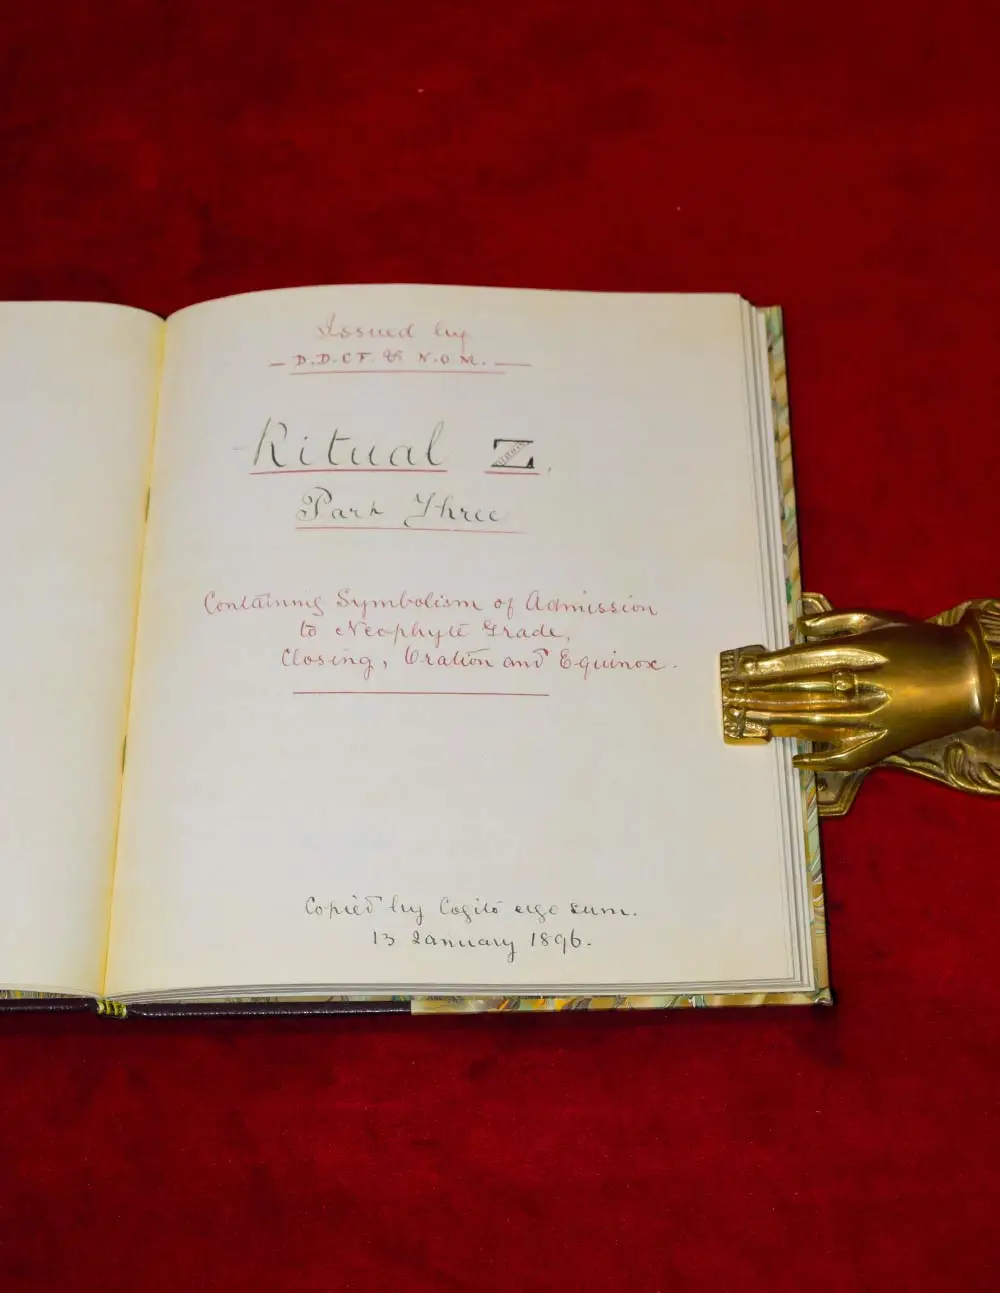 Issued by
— D.D.C.F. & N.O.M. —
Ritual Z.
Part Three
Containing Symbolism of Admission
to Neophyte Grade,
Closing, Oration and Equinox.
Copied by Cogito ergo sum.
13 January 1896.